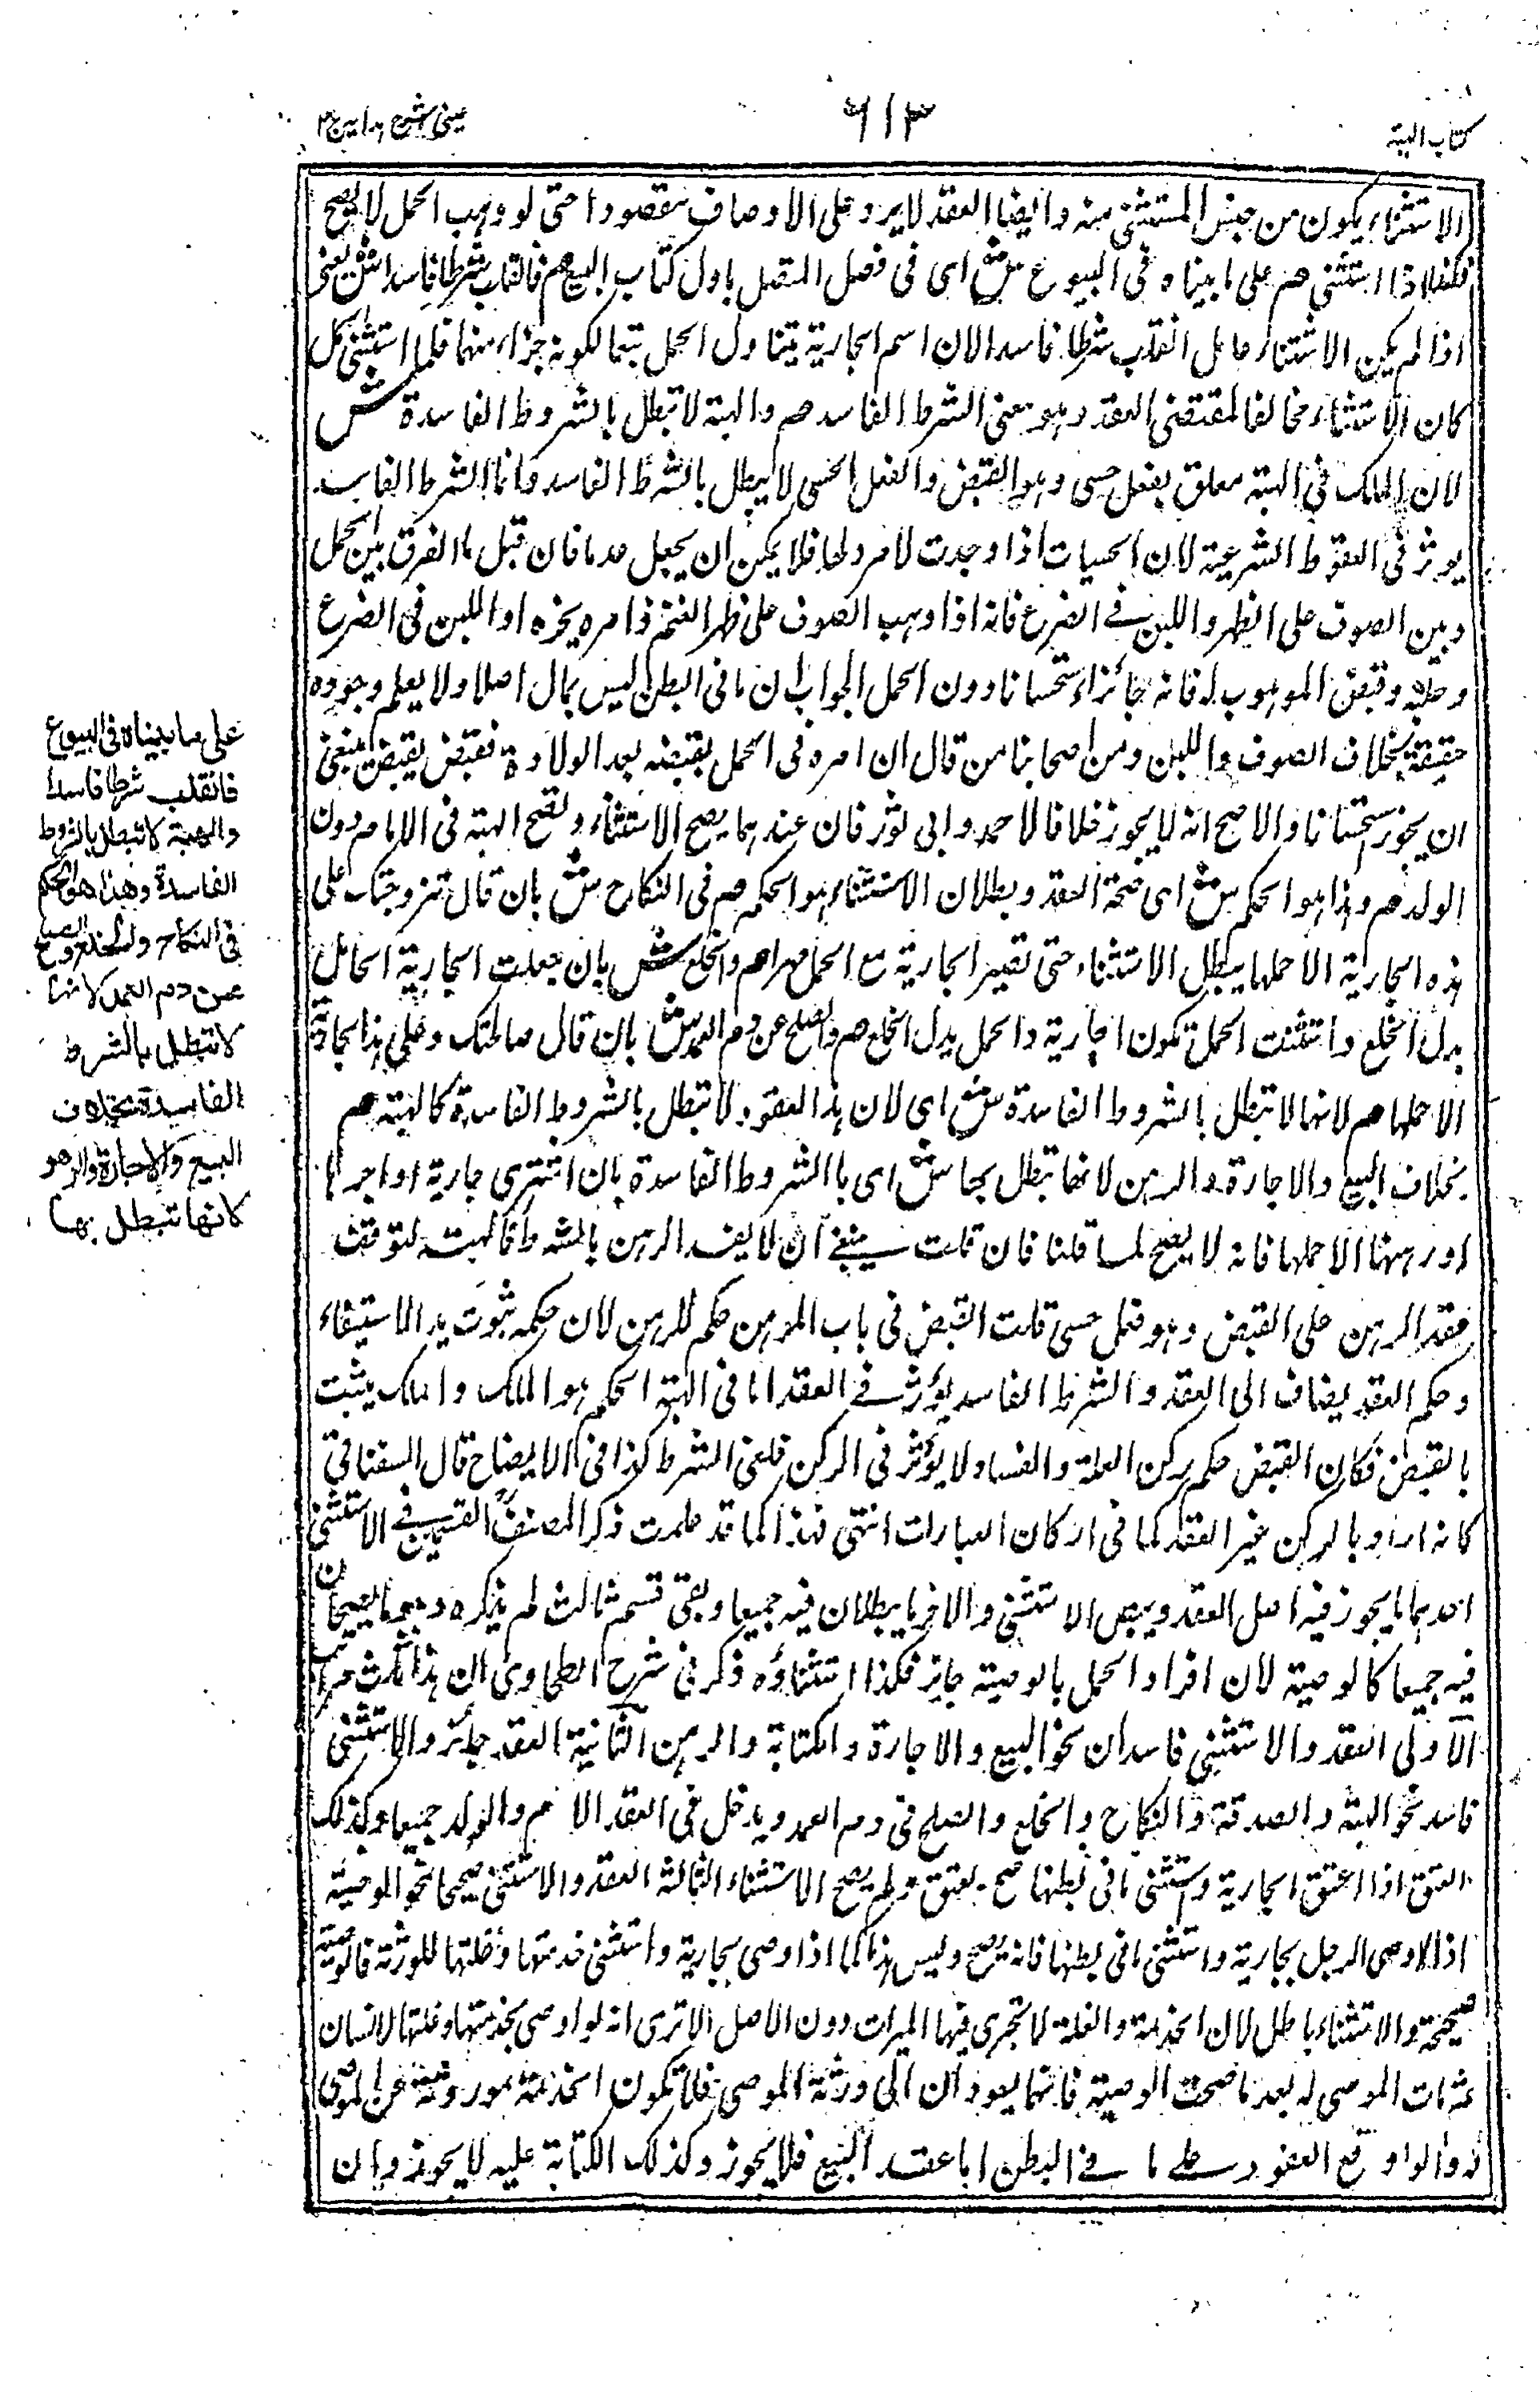 كتاب الهبة
٦١٣
عينى شرح هدايه ج٣
الاستثناء يكون من جنس المستثنى منه وايضا العقد لا يرد على الاوصاف مقصودا حتى لو وهب الحمل لا يصح
فكذا اذا استثنى هم على ما بيناه فى البيوع ش اى فى فصل المتصل باول كتاب البيع هم فانقلب شرطا فاسدا ش يعنى
اذا لم يكن الاستثناء عاملا انقلب شرطا فاسدا لان اسم الجارية يتناول الحمل تبعا لكونه جزاء منها فلما استثنى الحمل
كان الاستثناء مخالفا لمقتضى العقد وهو معنى الشرط الفاسد هم والهبة لا تبطل بالشروط الفاسدة ش
لان الملك فى الهبة معلق بفعل حسى وهو القبض والفعل الحسى لا يبطل بالشرط الفاسد وانما الشرط الفاسد
يوثر فى العقود الشرعية لان الحسيات اذا وجدت لا مرد لها فلا يمكن ان يجعل عدما فان قيل ما الفرق بين الحمل
وبين الصوف على الظهر واللبن فى الضرع فانه اذا وهب الصوف على ظهر الغنم وامره بجزه او اللبن فى الضرع
وحلبه وقبض الموهوب له فانه جائز استحسانا دون الحمل الجواب ان ما فى البطن ليس بمال اصلا ولا يعلم وجوده
حقيقة بخلاف الصوف واللبن ومن اصحابنا من قال ان امره فى الحمل بقبضه بعد الولادة فقبض يقبض ينبغى
ان يجوز استحسانا والاصح انه لا يجوز خلافا لاحمد وابى ثور فان عندهما يصح الاستثناء وتصح الهبة فى الام دون
الولد هم وهذا هو الحكم ش اى صحة العقد وبطلان الاستثناء هو الحكم هم فى النكاح ش بان قال تزوجتك على
هذه الجارية الا حملها يبطل الاستثناء حتى تصير الجارية مع الحمل مهرا هم والخلع ش بان جعلت الجارية الحامل
بدل الخلع واستثنت الحمل تكون الجارية والحمل بدل الخلع هم والصلح عن دم العمد ش بان قال صالحتك وعلى هذه الجارية
الا حملها هم لانها لا تبطل بالشروط الفاسدة ش اى لان هذه العقود لا تبطل بالشروط الفاسدة كالهبة هم
بخلاف البيع والاجارة والرهن لانها تبطل بها ش اى با الشروط الفاسدة بان اشترى جارية او اجرها
او رهنها الا حملها فانه لا يصح لما قلنا فان قلت ينبغى ان لا يفسد الرهن بالشرط كالهبة لتوقف
عقد الرهن على القبض وهو فعل حسى قلت القبض فى باب الرهن حكم للرهن لان حكمه ثبوت يد الاستيفاء
وحكم العقد يضاف الى العقد والشرط الفاسد يؤثر فى العقد اما فى الهبة الحكم هو الملك والملك يثبت
بالقبض فكان القبض حكم ركن العلة والفساد لا يؤثر فى الركن فلغى الشرط كذا فى الايضاح قال السغناقى
كانه اراد بالركن غير العقد كما فى اركان العبارات انتهى فهذا كما قد علمت ذكر المصنف القسمين فى الاستثنى
احدهما ما يجوز فيه اصل العقد ويبطل الاستثنى والاخر ما يبطلان فيه جميعا وبقى قسم ثالث لم يذكره وهو ما يصحان
فيه جميعا كالوصية لان افراد الحمل بالوصية جايز فكذا استثناؤه ذكر فى شرح الطحاوى ان هذا ثلاث مراتب
الاولى العقد والاستثنى فاسدان نحو البيع والاجارة والكتابة والرهن الثانية العقد جائز والاستثنى
فاسد نحو الهبة والصدقة والنكاح والخلع والصلح فى دم العمد ويدخل فى العقد الام والولد جميعا وكذلك
العتق اذا اعتق الجارية واستثنى ما فى بطنها صح بعتق ولم يصح الاستثناء الثالثة العقد والاستثنى صحيحا نحو الوصية
اذا اوصى الرجل بجارية واستثنى ما فى بطنها فانه يصح وليس هذا كما اذا وصى بجارية واستثنى خدمتها وغلتها للورثة فالوصية
صحيحة والاستثناء باطل لان الخدمة والغلة لا تجرى فيها الميراث دون الاصل الا ترى انه لو اوصى بخدمتها وغلتها لانسان
ثم مات الموصى له بعد ما صحت الوصية فانهما يعودان الى ورثة الموصى فلا تكون الخدمة موروثة عن الموصى
له والواوقع العقود على ما فى البطن اما عقد البيع فلا يجوز وكذلك الكتابة عليه لا يجوز وان
على ما بيناه فى البيوع
فانقلب شرطا فاسدا
والهبة لا تبطل بالشروط
الفاسدة وهذا هو الحكم
فى النكاح والخلع والصلح
عن دم العمد لانها
لا تبطل بالشرط
الفاسدة بخلاف
البيع والاجارة والرهن
لانها تبطل بها